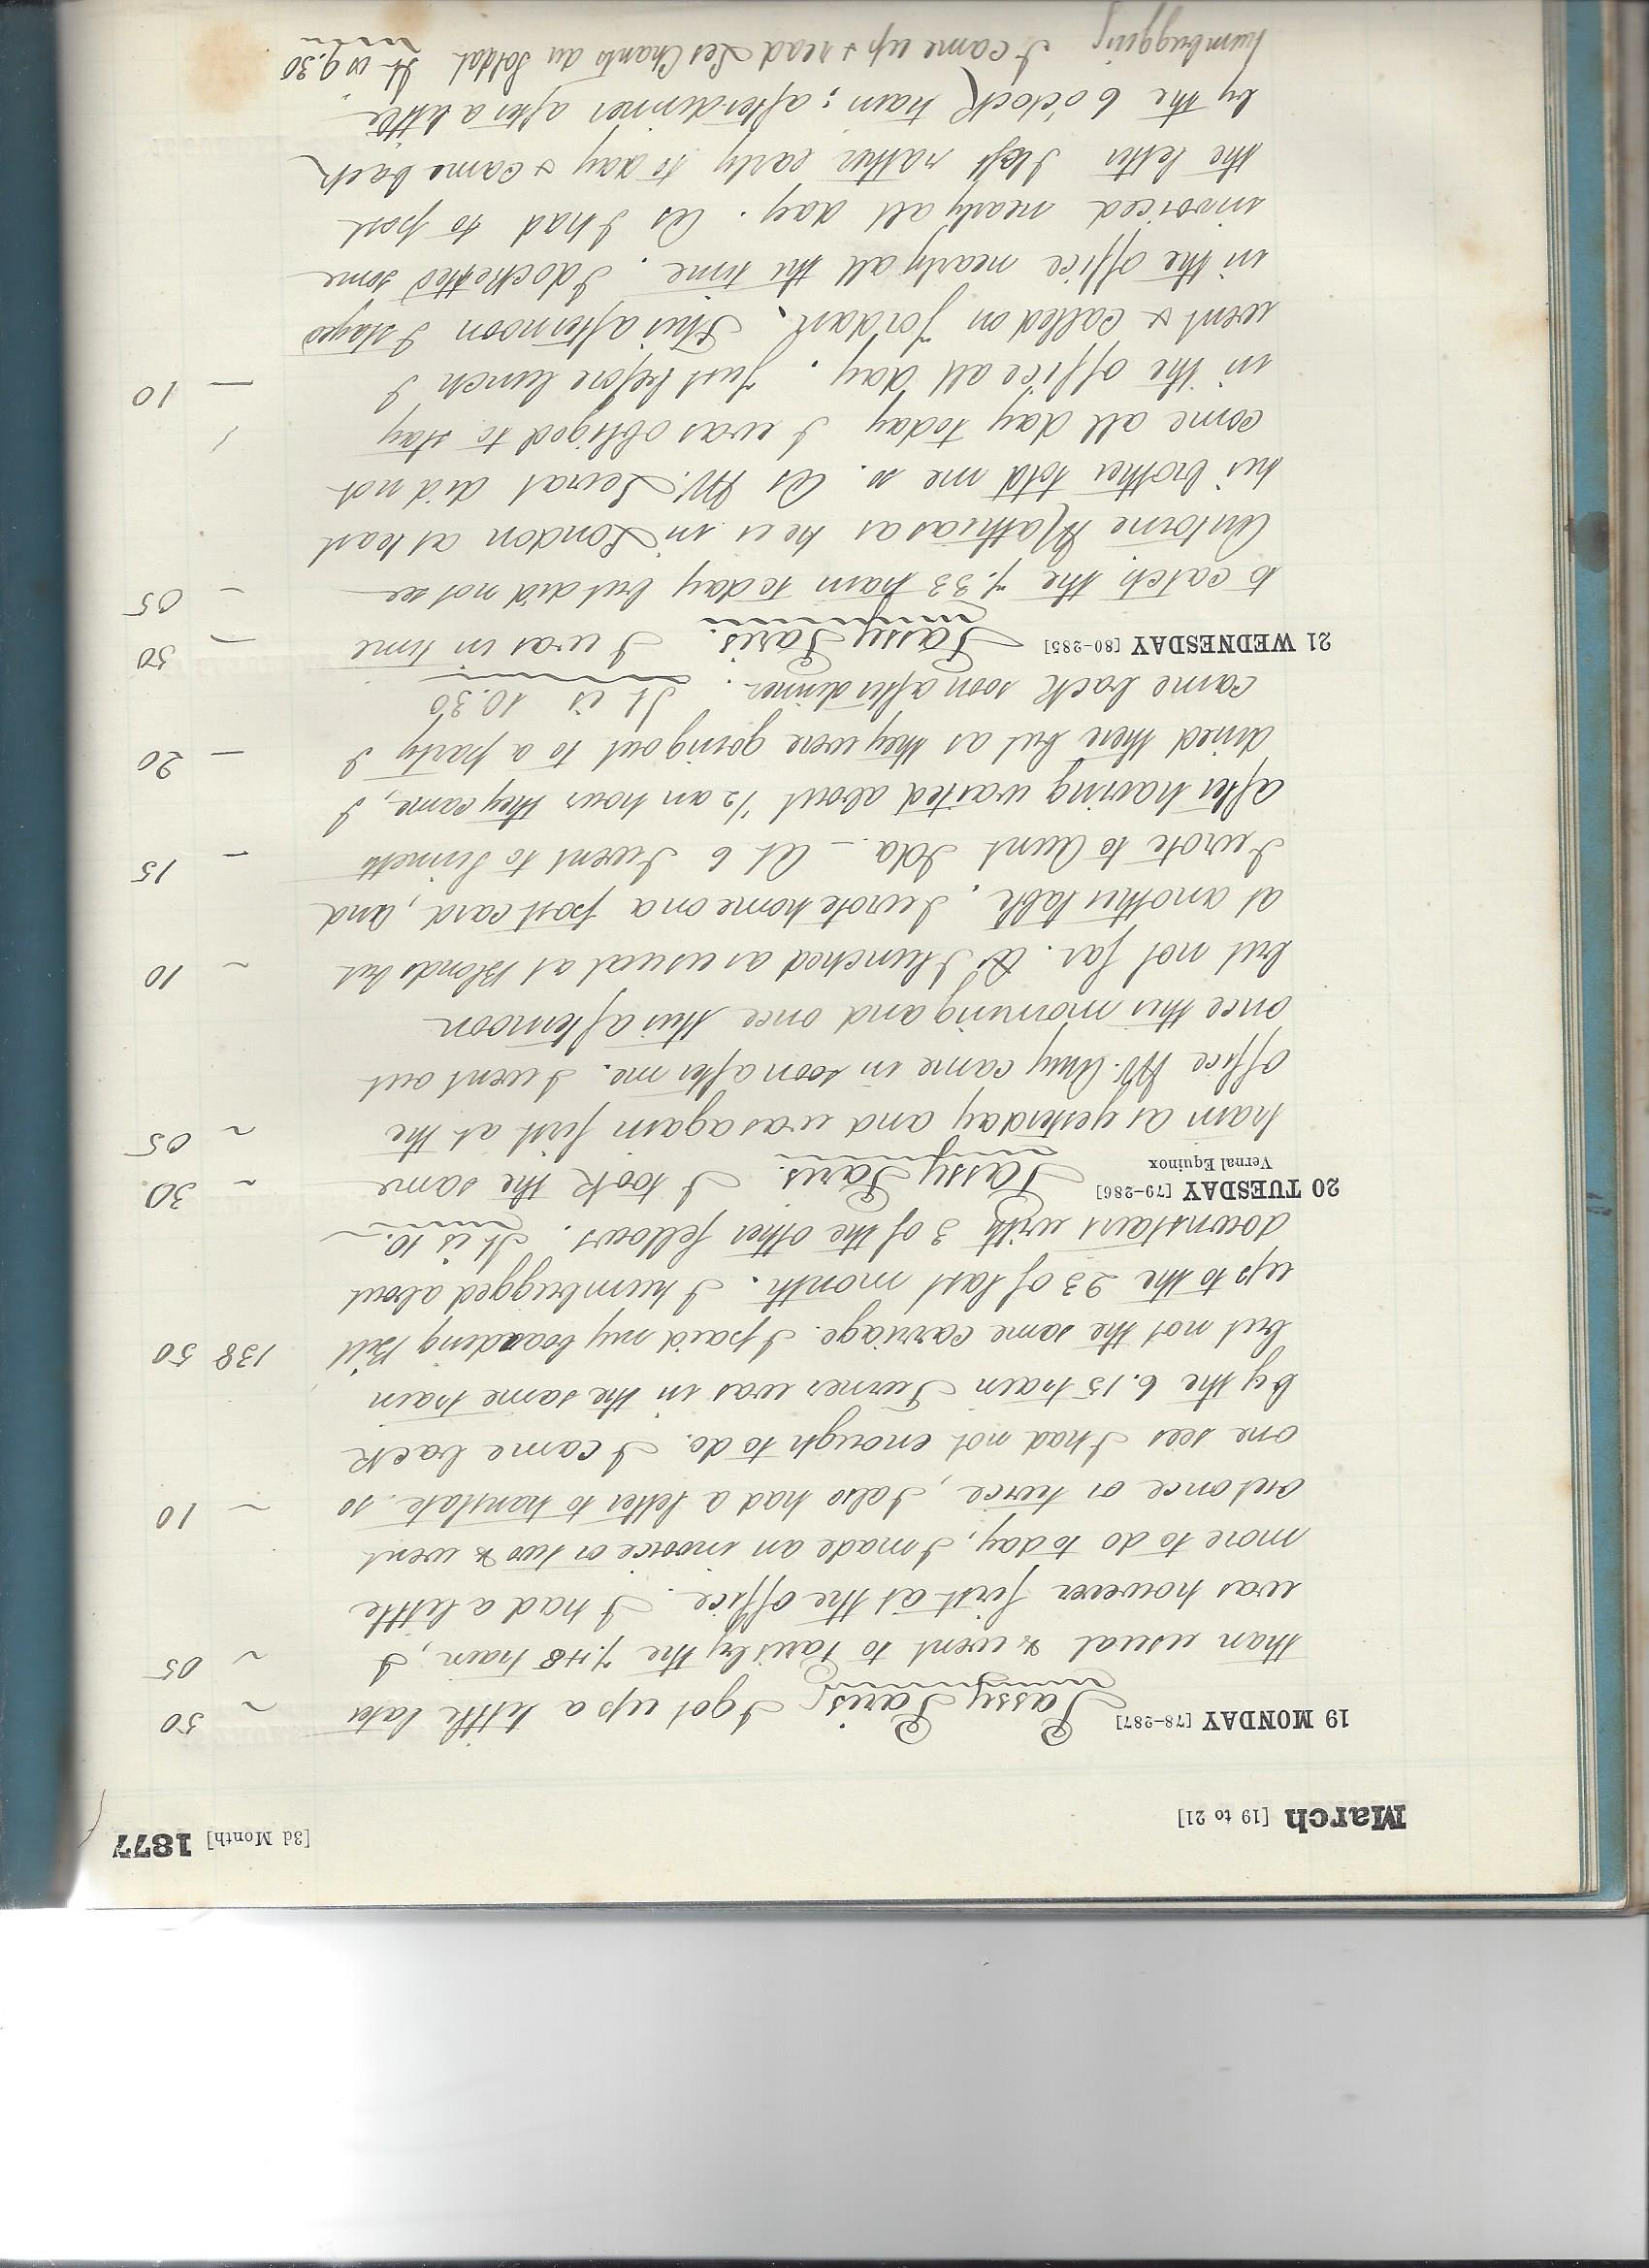 March [19 to 21] [3d Month] 1877
19 MONDAY [78-287] Passy Paris, I got up a little later ~ 50
than usual & went to Paris by the 7.48 train, I ~ 05
was however first at the office. I had a little
more to do to day, I made an invoice or two & went
out once or twice, I also had a letter to translate. so ~ 10
one sees I had not enough to do. I came back
by the 6.15 train Turner was in the same train
but not the same carriage. I paid my boarding Bill 138 50
up to the 23 of last month. I humbugged about
downstairs with 3 of the other fellows. It is 10.
20 TUESDAY [79-286] Passy Paris. I took the same ~ 30
Vernal Equinox
train as yesterday and was again first at the ~ 05
office Mr. Amy came in soon after me. I went out
once this morning and once this afternoon
but not far. I lunched as usual at Blonds but ~ 10
at another table. I wrote home on a post card, and
I wrote to Aunt Ida. - At 6 I went to - 15
after having waited about 1/2 an hour they came, I
dined there but as they were going out to a party I - 20
came back soon after dinner. It is 10.30
21 WEDNESDAY [80-285] Passy Paris. I was in time - 30
to catch the 7.33 train to day but did not see - 05
Antoine Mathias as he is in London at least
his brother told me so. As Mr. did not
come all day today I was obliged to stay
in the office all day. Just before lunch I — 10
went & called on Jordan. This afternoon I stayed
in the office nearly all the time. I docketted some
invoiced nearly all day. As I had to post
the letter I left rather early to day & came back
by the 6 o'clock train; after dinner after a little
humbugging I came up & read Les Chants du Soldat It is 9.30